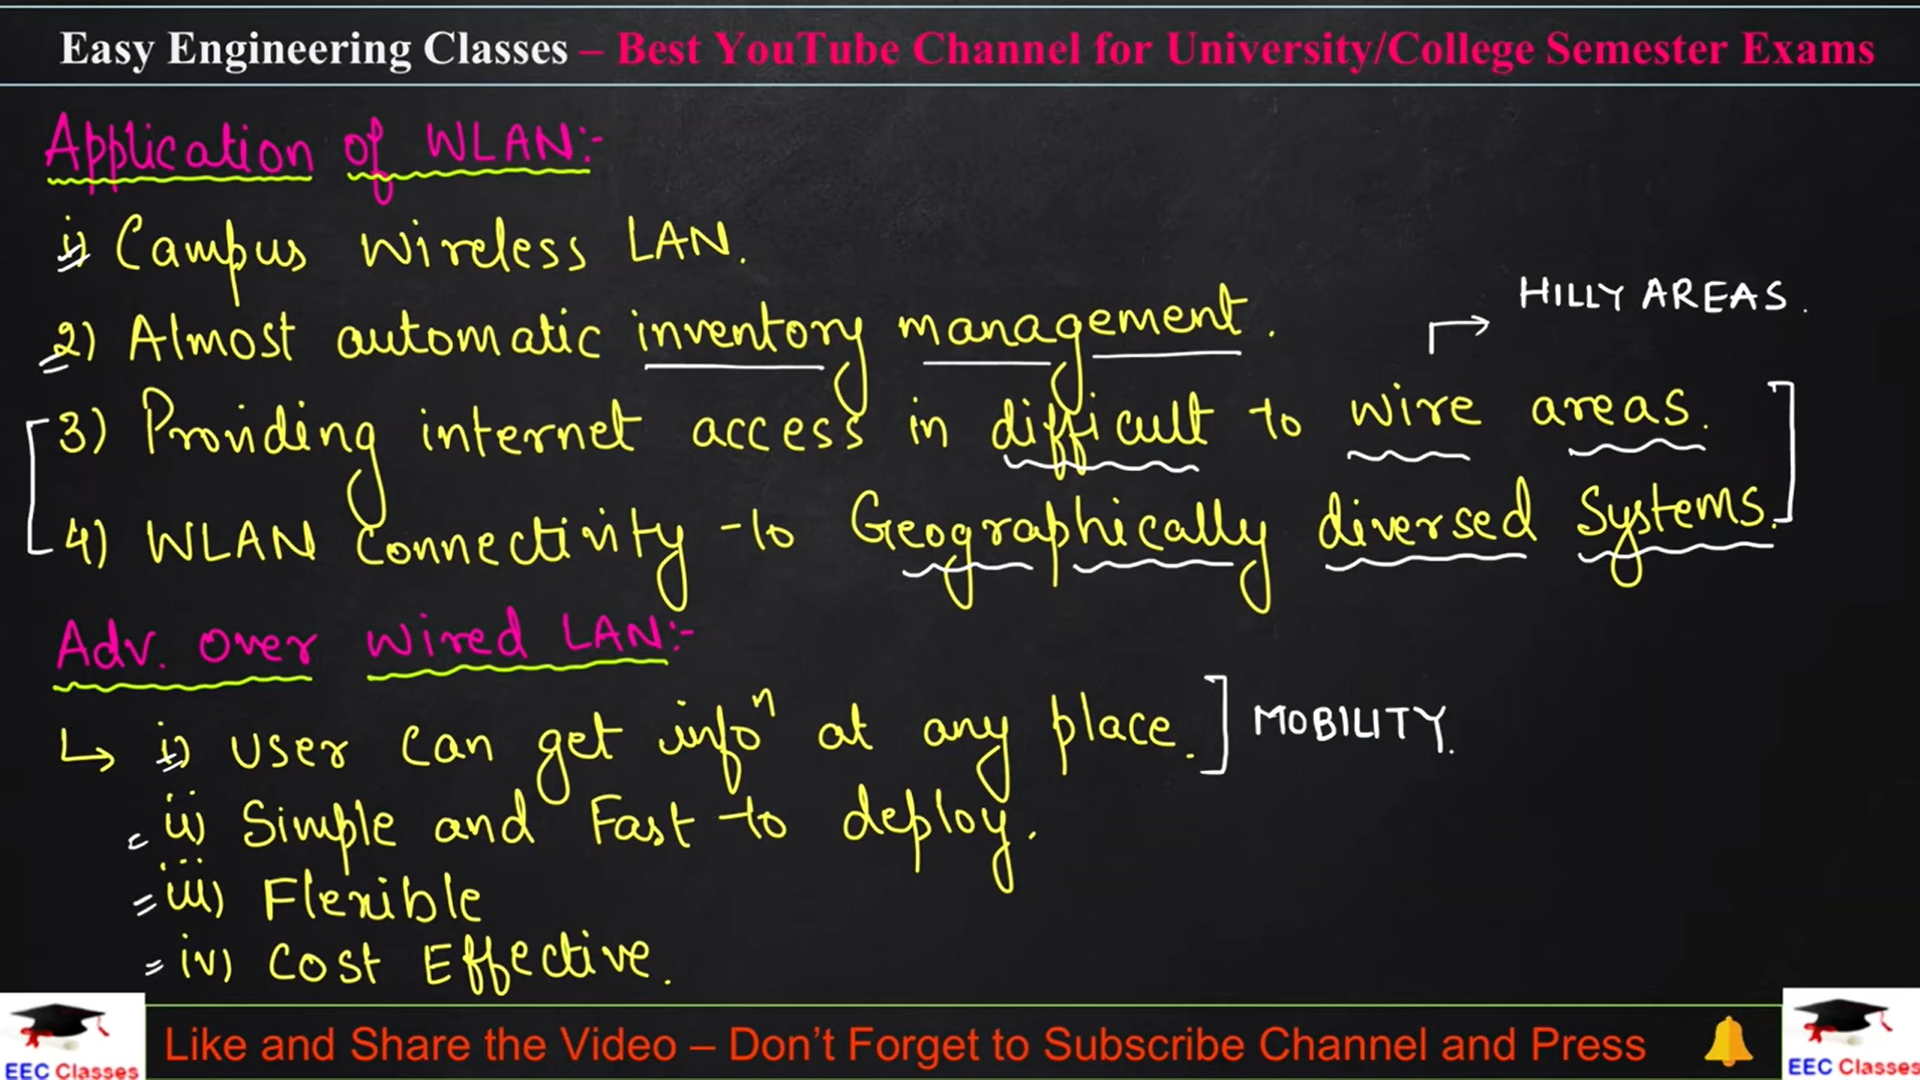 Easy Engineering Classes – Best YouTube Channel for University/College Semester Exams
Application of WLAN:-
i) Campus Wireless LAN.
2) Almost automatic inventory management.
HILLY AREAS.
3) Providing internet access in difficult to wire areas.
4) WLAN Connectivity to Geographically diversed Systems.
Adv. over Wired LAN:-
i) User can get infoⁿ at any place. ] MOBILITY.
ii) Simple and Fast to deploy.
iii) Flexible
iv) Cost Effective.
Like and Share the Video – Don't Forget to Subscribe Channel and Press
EEC Classes
EEC Classes